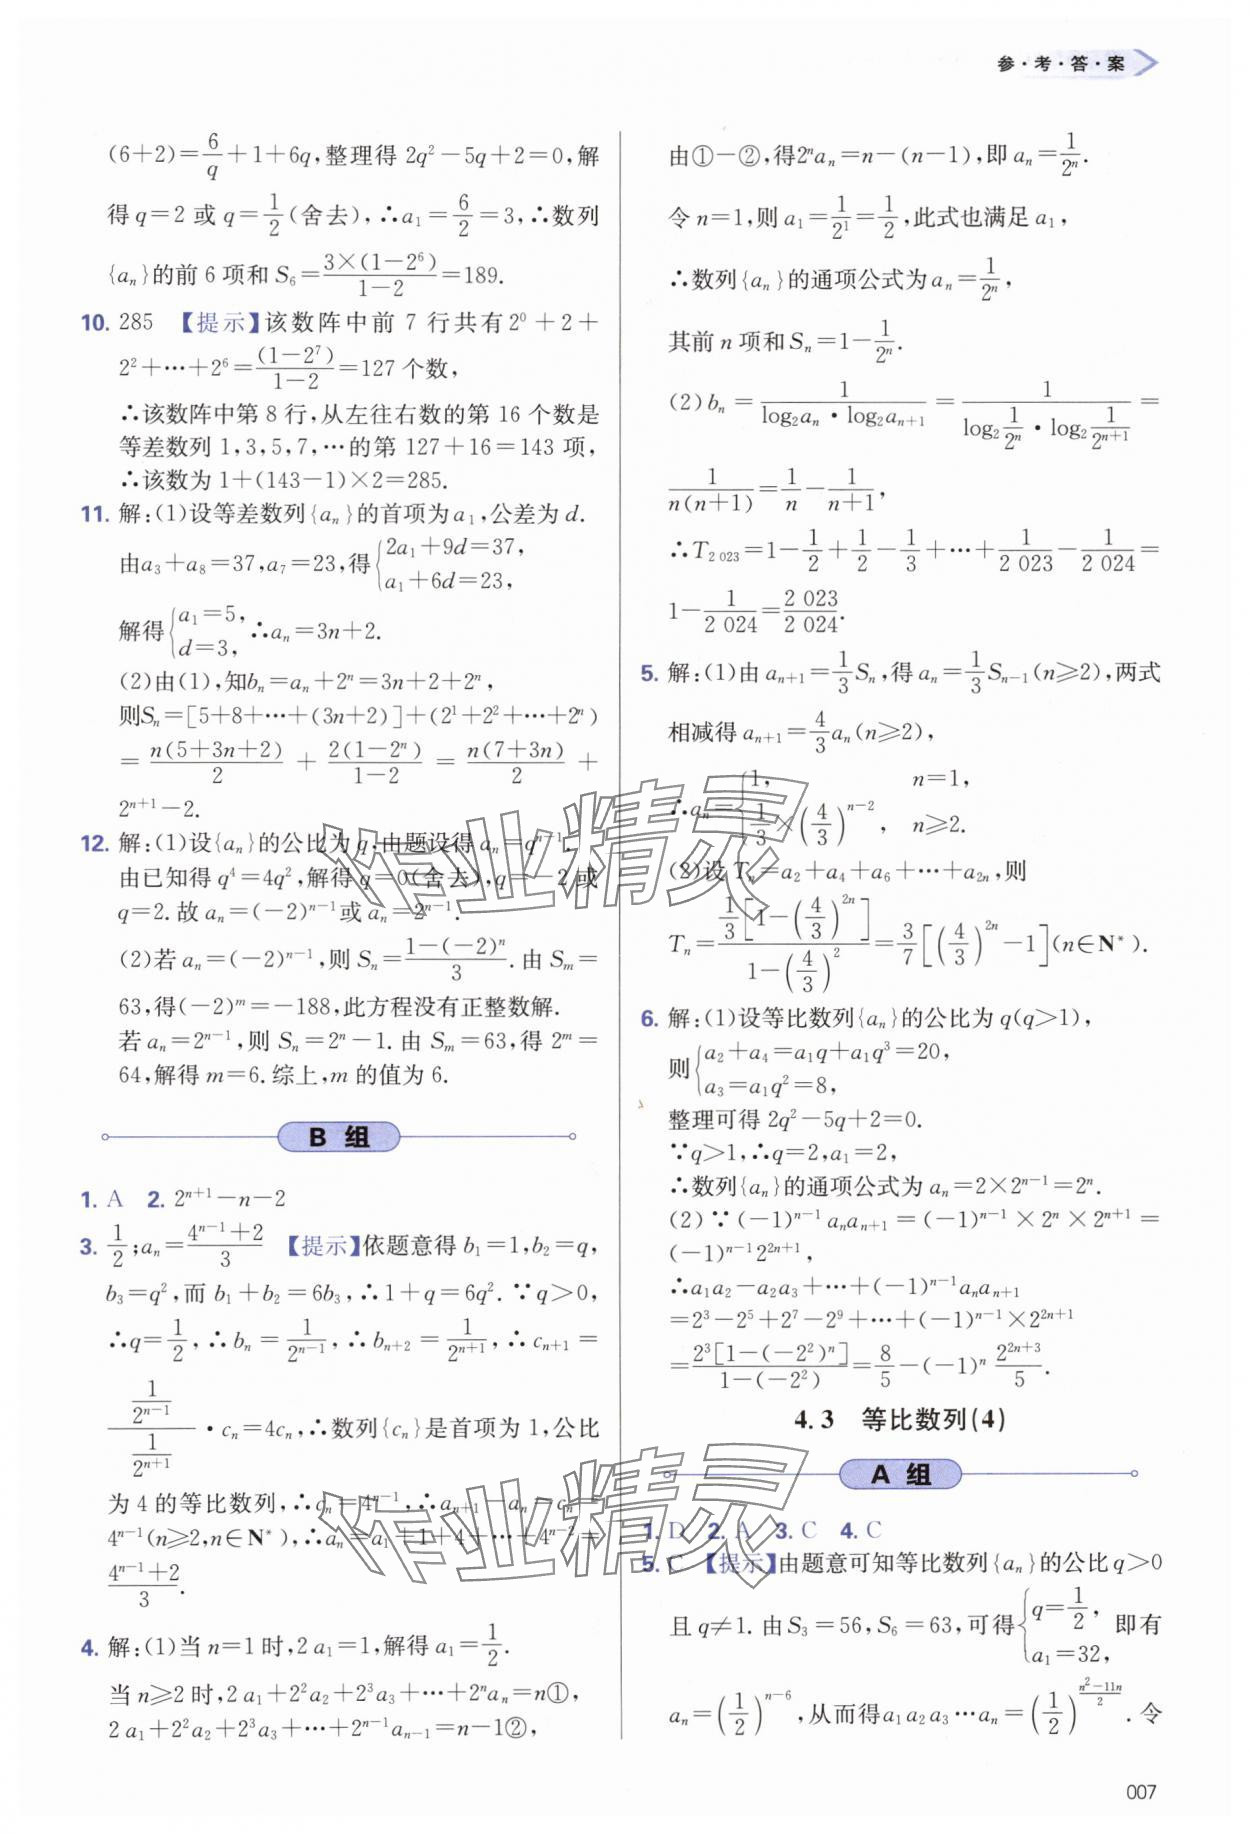 参·考·答·案
(6+2)=6/q+1+6q,整理得 2q²-5q+2=0,解
得 q=2 或 q=1/2(舍去),∴a₁=6/2=3,∴数列
{aₙ}的前 6 项和 S₆=3×(1-2⁶)/(1-2)=189.
10. 285 【提示】该数阵中前 7 行共有 2⁰+2+
2²+…+2⁶=(1-2⁷)/(1-2)=127 个数,
∴该数阵中第 8 行,从左往右数的第 16 个数是
等差数列 1,3,5,7,…的第 127+16=143 项,
∴该数为 1+(143-1)×2=285.
11. 解:(1)设等差数列{aₙ}的首项为 a₁,公差为 d.
由a₃+a₈=37,a₇=23,得{2a₁+9d=37,
a₁+6d=23,
解得{a₁=5,
d=3, ∴aₙ=3n+2.
(2)由(1),知bₙ=aₙ+2ⁿ=3n+2+2ⁿ,
则Sₙ=[5+8+…+(3n+2)]+(2¹+2²+…+2ⁿ)
=n(5+3n+2)/2+2(1-2ⁿ)/(1-2)=n(7+3n)/2+
2ⁿ⁺¹-2.
12. 解:(1)设{aₙ}的公比为 q,由题设得 aₙ=qⁿ⁻¹.
由已知得 q⁴=4q²,解得 q=0(舍去),q=-2 或
q=2.故 aₙ=(-2)ⁿ⁻¹或 aₙ=2ⁿ⁻¹.
(2)若 aₙ=(-2)ⁿ⁻¹,则 Sₙ=(1-(-2)ⁿ)/3.由 Sₘ=
63,得(-2)ᵐ=-188,此方程没有正整数解.
若 aₙ=2ⁿ⁻¹,则 Sₙ=2ⁿ-1.由 Sₘ=63,得 2ᵐ=
64,解得 m=6.综上,m 的值为 6.
B 组
1. A 2. 2ⁿ⁺¹-n-2
3. 1/2;aₙ=(4ⁿ⁻¹+2)/3 【提示】依题意得 b₁=1,b₂=q,
b₃=q²,而 b₁+b₂=6b₃,∴1+q=6q².∵q>0,
∴q=1/2,∴bₙ=1/2ⁿ⁻¹,∴bₙ₊₂=1/2ⁿ⁺¹,∴cₙ₊₁=
(1/2ⁿ⁻¹)/(1/2ⁿ⁺¹)·cₙ=4cₙ,∴数列{cₙ}是首项为 1,公比
为 4 的等比数列,∴cₙ=4ⁿ⁻¹,∴aₙ₊₁-aₙ=cₙ=
4ⁿ⁻¹(n≥2,n∈N*),∴aₙ=a₁+1+4+…+4ⁿ⁻²=
(4ⁿ⁻¹+2)/3.
4. 解:(1)当 n=1 时,2a₁=1,解得 a₁=1/2.
当 n≥2 时,2a₁+2²a₂+2³a₃+…+2ⁿaₙ=n①,
2a₁+2²a₂+2³a₃+…+2ⁿ⁻¹aₙ₋₁=n-1②,
由①-②,得2ⁿaₙ=n-(n-1),即 aₙ=1/2ⁿ.
令 n=1,则 a₁=1/2¹=1/2,此式也满足 a₁,
∴数列{aₙ}的通项公式为 aₙ=1/2ⁿ,
其前 n 项和 Sₙ=1-1/2ⁿ.
(2)bₙ=1/(log₂aₙ·log₂aₙ₊₁)=1/(log₂(1/2ⁿ)·log₂(1/2ⁿ⁺¹))=
1/(n(n+1))=1/n-1/(n+1),
∴T₂ ₀₂₃=1-1/2+1/2-1/3+…+1/2 023-1/2 024=
1-1/2 024=2 023/2 024.
5. 解:(1)由 aₙ₊₁=1/3Sₙ,得 aₙ=1/3Sₙ₋₁(n≥2),两式
相减得 aₙ₊₁=4/3aₙ(n≥2),
∴aₙ={1, n=1,
1/3×(4/3)ⁿ⁻², n≥2.
(2)设 Tₙ=a₂+a₄+a₆+…+a₂ₙ,则
Tₙ=(1/3[1-(4/3)²ⁿ])/(1-(4/3)²)=3/7[(4/3)²ⁿ-1](n∈N*).
6. 解:(1)设等比数列{aₙ}的公比为 q(q>1),
则{a₂+a₄=a₁q+a₁q³=20,
a₃=a₁q²=8,
整理可得 2q²-5q+2=0.
∵q>1,∴q=2,a₁=2,
∴数列{aₙ}的通项公式为 aₙ=2×2ⁿ⁻¹=2ⁿ.
(2)∵(-1)ⁿ⁻¹aₙaₙ₊₁=(-1)ⁿ⁻¹×2ⁿ×2ⁿ⁺¹=
(-1)ⁿ⁻¹2²ⁿ⁺¹,
∴a₁a₂-a₂a₃+…+(-1)ⁿ⁻¹aₙaₙ₊₁
=2³-2⁵+2⁷-2⁹+…+(-1)ⁿ⁻¹×2²ⁿ⁺¹
=2³[1-(-2²)ⁿ]/(1-(-2²))=8/5-(-1)ⁿ 2²ⁿ⁺³/5.
4.3 等比数列(4)
A 组
1. D 2. A 3. C 4. C
5. C 【提示】由题意可知等比数列{aₙ}的公比 q>0
且 q≠1.由 S₃=56,S₆=63,可得{q=1/2,
a₁=32, 即有
aₙ=(1/2)ⁿ⁻⁶,从而得a₁a₂a₃…aₙ=(1/2)^((n²-11n)/2).令
007
作业精灵
作业精灵